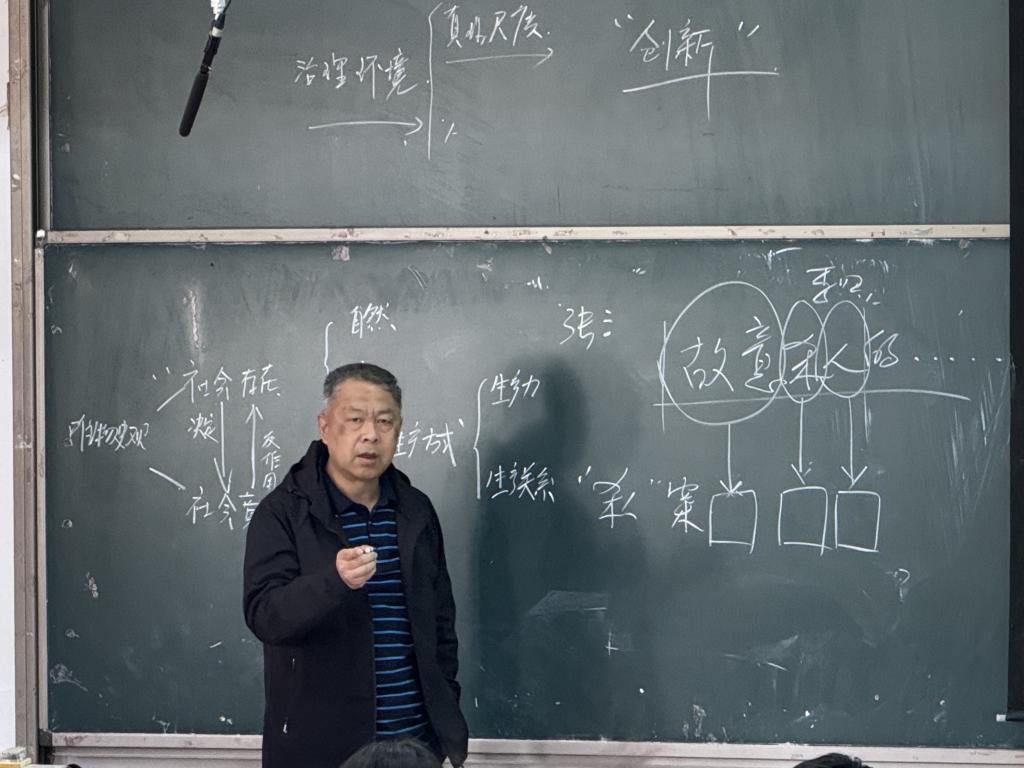 治理环境 真的尺度
"创新"
自然
张三
李四
故意杀人的······
社会存在
决定
反作用
社会意
生产方式
生产力
生产关系
"杀"案